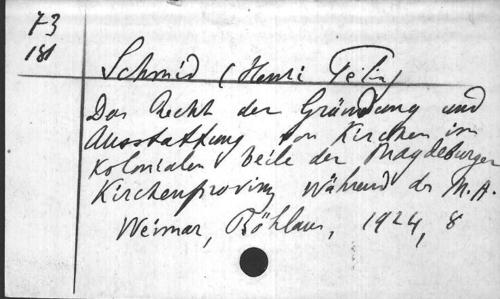 73
181
Schmid (Henri Felix)
Das Recht der Gründung und
Ausstattung von Kirchen im
Kolonialen Teile der Magdeburger
Kirchenprovinz während des M.A.
Weimar, Böhlaus, 1924, 8